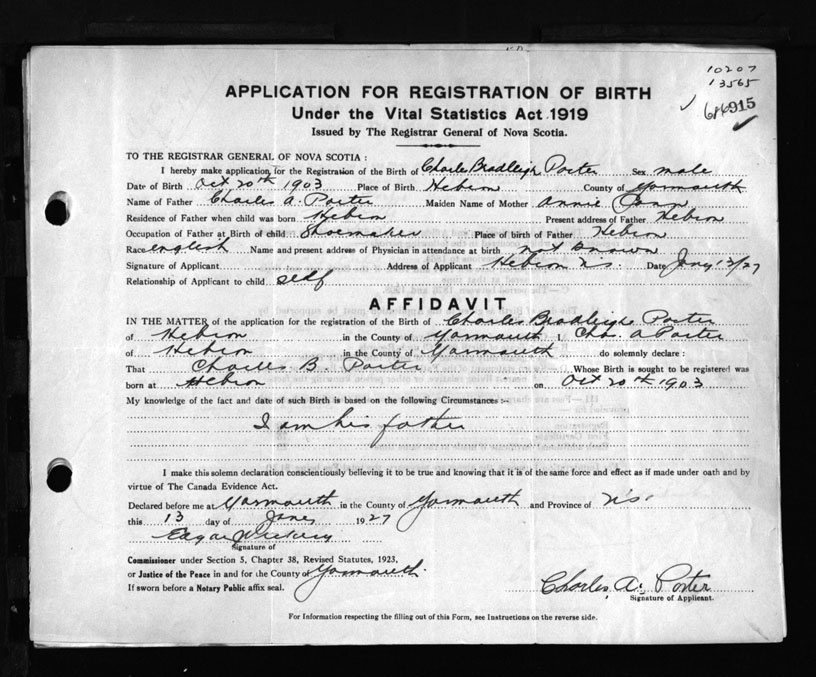 10207
13565
915
APPLICATION FOR REGISTRATION OF BIRTH
Under the Vital Statistics Act 1919
Issued by The Registrar General of Nova Scotia.
TO THE REGISTRAR GENERAL OF NOVA SCOTIA :
I hereby make application for the Registration of the Birth of Charles Bradleigh Porter Sex male
Date of Birth Oct 20th 1903 Place of Birth Hebron County of Yarmouth
Name of Father Charles A. Porter Maiden Name of Mother Annie
Residence of Father when child was born Hebron Present address of Father Hebron
Occupation of Father at Birth of child Shoemaker Place of Birth of Father Hebron
Race english Name and present address of Physician in attendance at birth not known
Signature of Applicant Address of Applicant Hebron N.S. Date Jany 13/27
Relationship of Applicant to child self
AFFIDAVIT
IN THE MATTER of the application for the registration of the Birth of Charles Bradleigh Porter
of Hebron in the County of Yarmouth I, Chas. A Porter
of Hebron in the County of Yarmouth do solemnly declare :
That Charles B. Porter Whose Birth is sought to be registered was
born at Hebron on Oct 20th 1903
My knowledge of the fact and date of such Birth is based on the following Circumstances :-
I am his father
I make this solemn declaration conscientiously believing it to be true and knowing that it is of the same force and effect as if made under oath and by
virtue of The Canada Evidence Act.
Declared before me at Yarmouth in the County of Yarmouth and Province of N.S.
this 13 day of Jany 1927
Edgar
Signature of
Commissioner under Section 5, Chapter 38, Revised Statutes, 1923,
or Justice of the Peace in and for the County of Yarmouth.
If sworn before a Notary Public affix seal.
Charles A. Porter
Signature of Applicant.
For Information respecting the filling out of this Form, see Instructions on the reverse side.